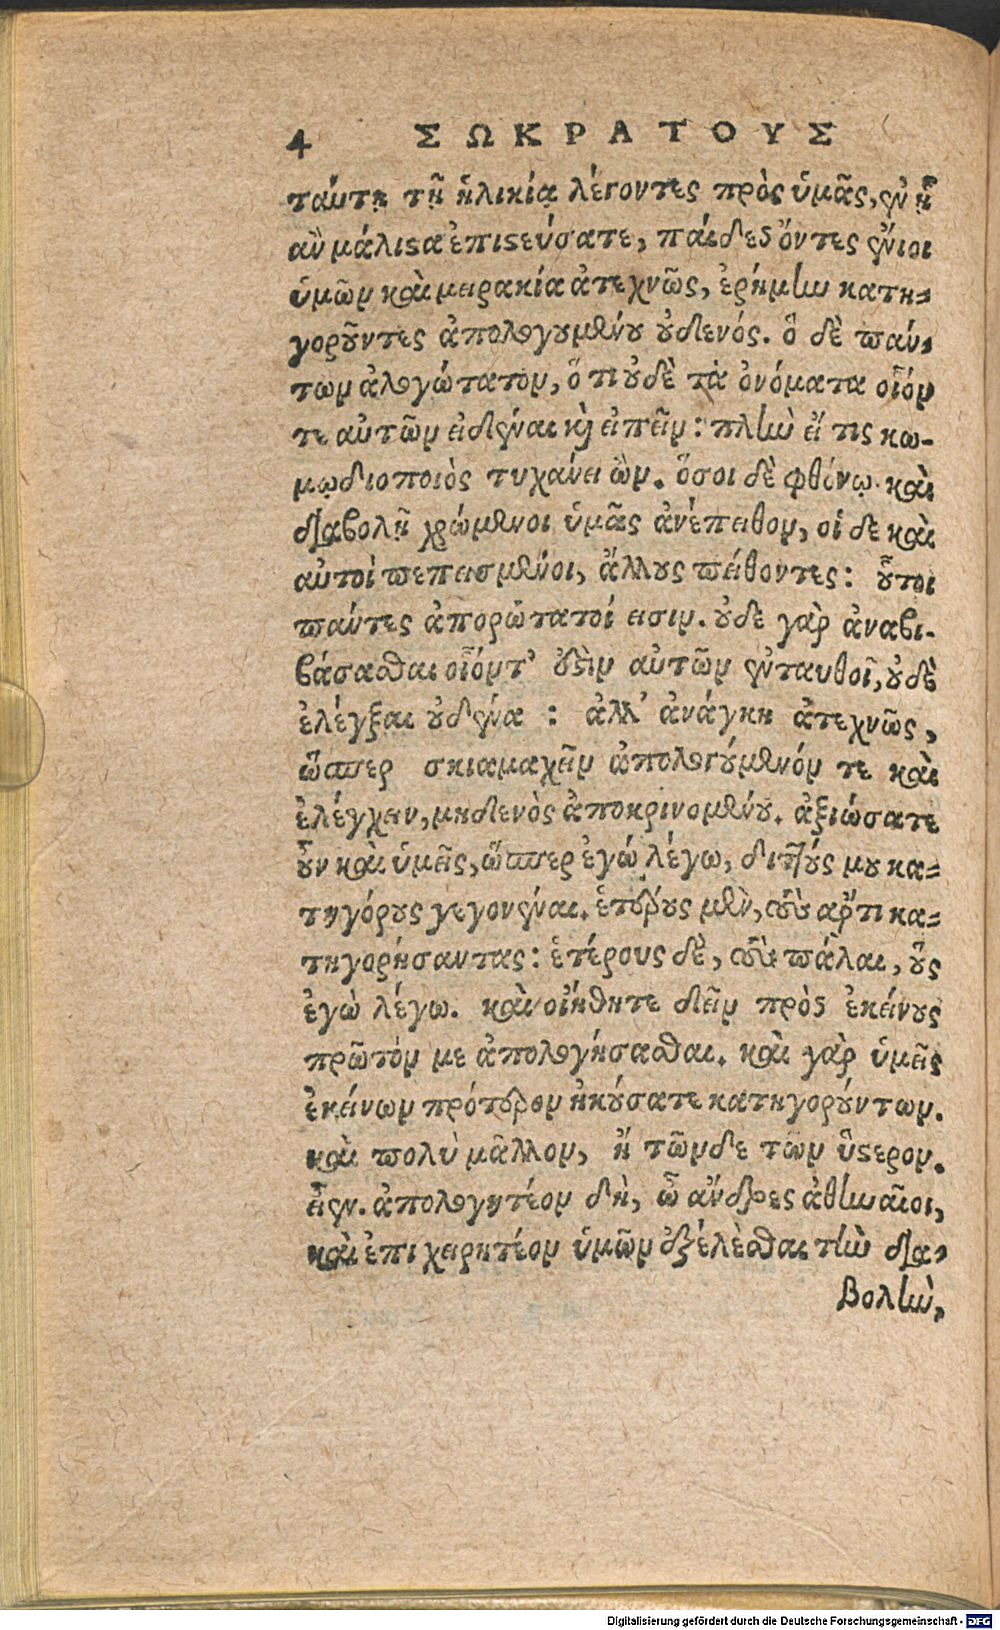 4 ΣΩΚΡΑΤΟΥΣ
ταύτῃ τῇ ἡλικίᾳ λέγοντες πρὸς ὑμᾶς, ἐν ᾗ
ἂν μάλιστα ἐπιστεύσατε, παίδες ὄντες ἔνιοι
ὑμῶν καὶ μειρακία ἀτεχνῶς, ἐρήμην κατη-
γοροῦντες ἀπολογουμένου οὐδενός. ὃ δὲ πάν-
των ἀλογώτατον, ὅτι οὐδὲ τὰ ὀνόματα οἷόν
τε αὐτῶν εἰδέναι καὶ εἰπεῖν: πλὴν εἴ τις κω-
μῳδιοποιὸς τυχάνει ὢν. ὅσοι δὲ φθόνῳ καὶ
διαβολῇ χρώμενοι ὑμᾶς ἀνέπειθον, οἱ δὲ καὶ
αὐτοὶ πεπεισμένοι, ἄλλους πείθοντες: οὗτοι
πάντες ἀπορώτατοί εισιν. οὐδε γὰρ ἀναβι-
βάσασθαι οἷόντ' οὐδὲν αὐτῶν ἐνταυθοῖ, οὐδὲ
ἐλέγξαι οὐδένα : ἀλλ' ἀνάγκη ἀτεχνῶς,
ὥσπερ σκιαμαχεῖν ἀπολογούμενόν τε καὶ
ἐλέγχειν, μηδενὸς ἀποκρινομένου. ἀξιώσατε
οὖν καὶ ὑμεῖς, ὥσπερ ἐγώ λέγω, διττούς μου κα-
τηγόρους γεγονέναι. ἑτέρους μὲν, τοὺς ἄρτι κα-
τηγορήσαντας: ἑτέρους δὲ, τοὺς πάλαι, οὓς
ἐγὼ λέγω. καὶ οἰήθητε δεῖν πρὸς ἐκείνους
πρῶτόν με ἀπολογήσασθαι. καὶ γὰρ ὑμεῖς
ἐκείνων πρότερον ἠκούσατε κατηγορούντων.
καὶ πολὺ μᾶλλον, ἢ τῶνδε τῶν ὕστερον.
εἶεν. ἀπολογητέον δὴ, ὦ ἄνδρες ἀθηναῖοι,
καὶ ἐπιχειρητέον ὑμῶν ἐξελέσθαι τὴν δια-
βολὴν,
Digitalisierung gefördert durch die Deutsche Forschungsgemeinschaft - DFG